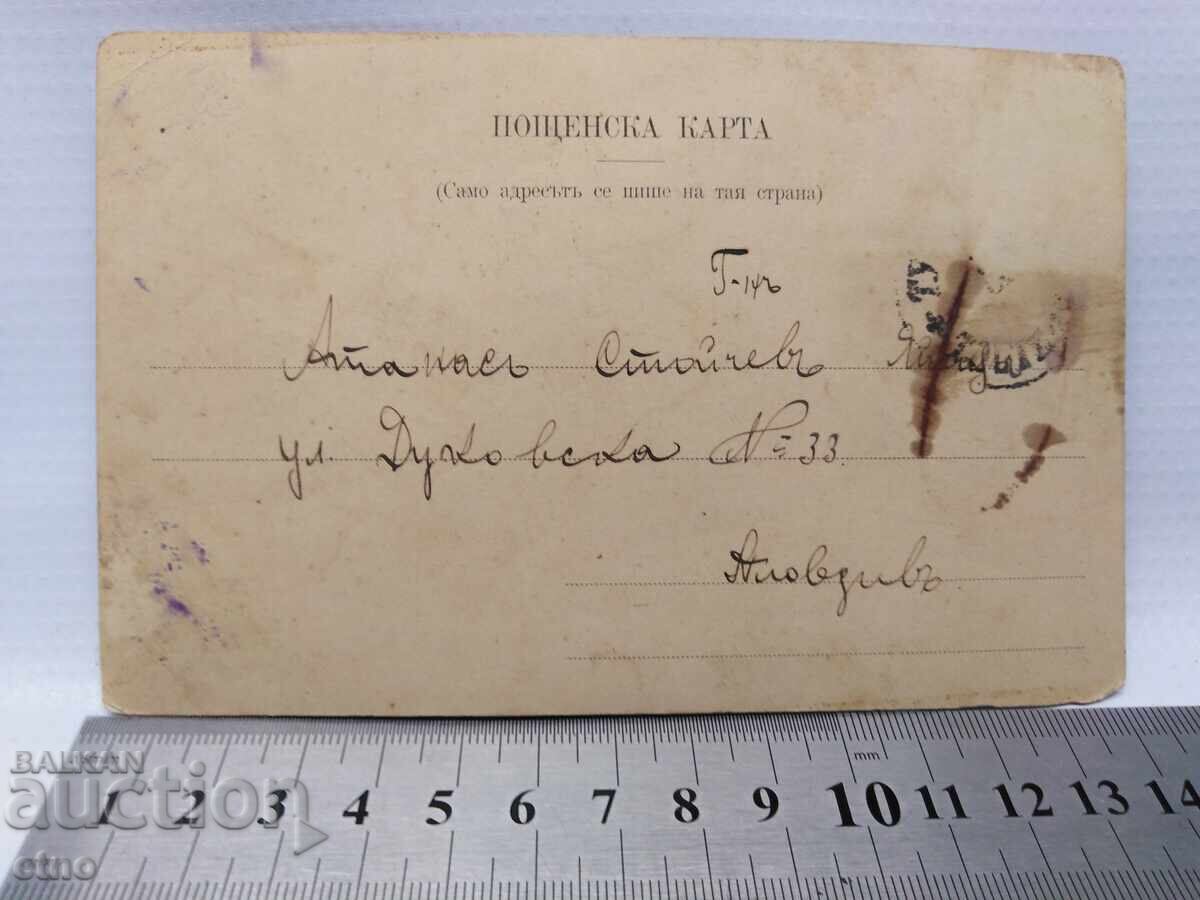 ПОЩЕНСКА КАРТА
(Само адресътъ се пише на тая страна)
Г-нъ
Атанасъ Стойчевъ
ул. Духовска № 33.
Пловдивъ
mm
1 2 3 4 5 6 7 8 9 10 11 12 13 14
BALKAN
auction
etno